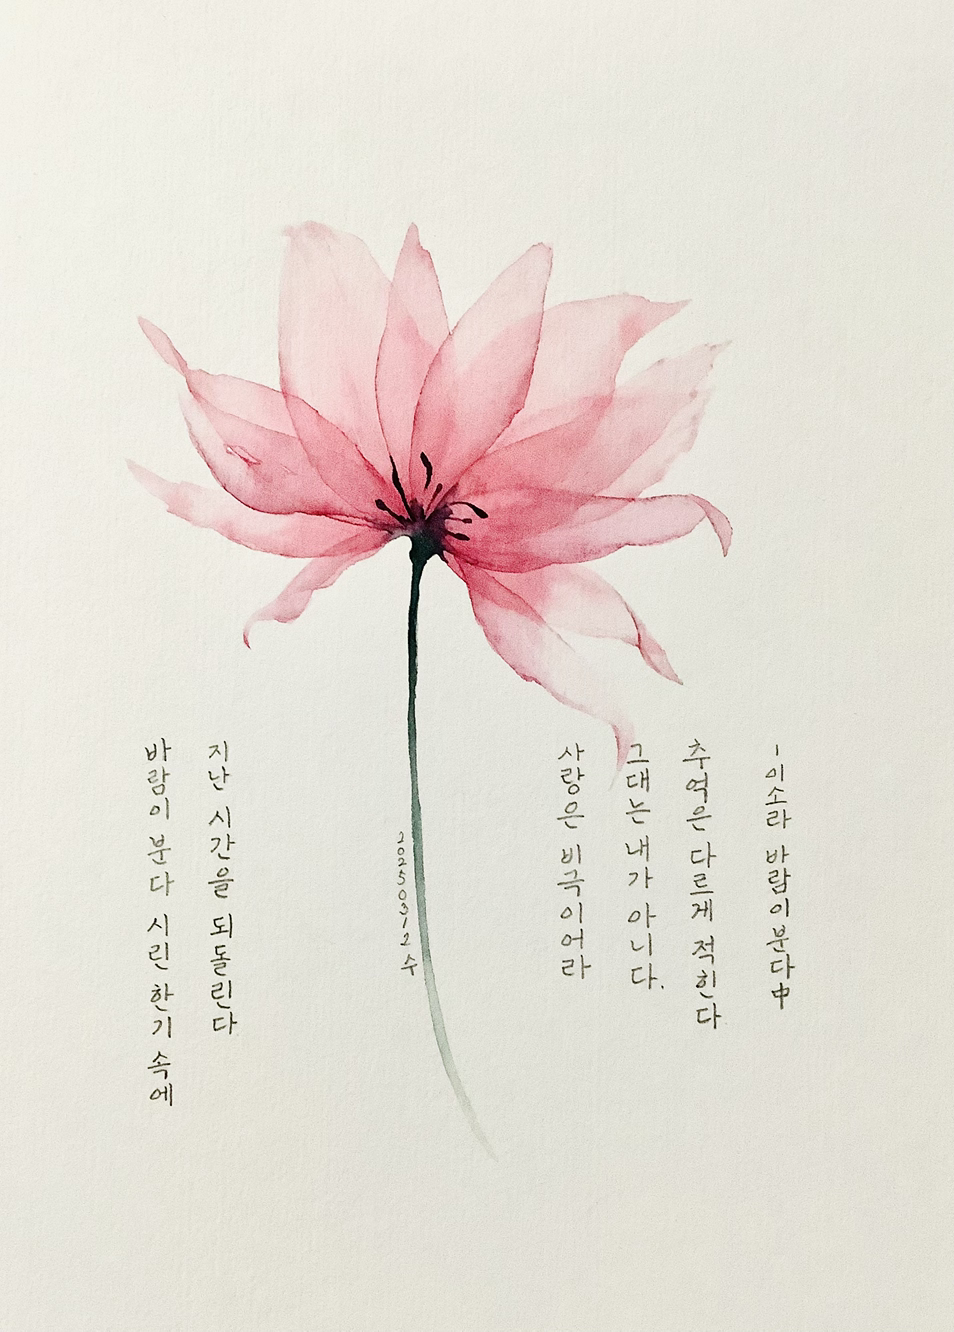 바람이 분다 시린 한기 속에
지난 시간을 되돌린다
20250312 수
사랑은 비극이어라
그대는 내가 아니다.
추억은 다르게 적힌다
-이소라 바람이분다中